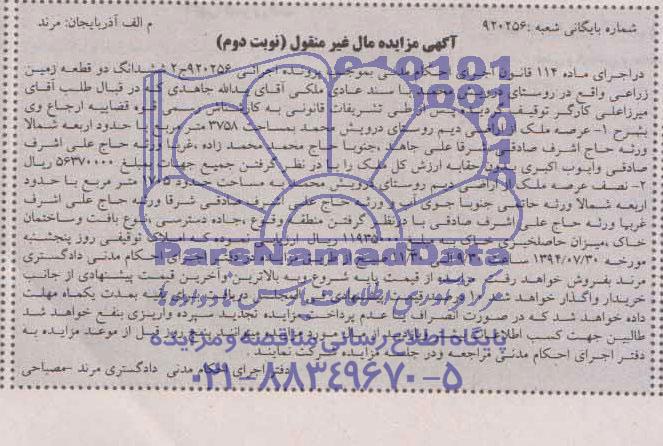 شماره بایگانی شعبه :۹۲۰۲۵۶ م الف آذربایجان: مرند
آگهی مزایده مال غیر منقول (نوبت دوم)
دراجرای ماده ۱۱۴ قانون اجرای احکام مدنی بموجب پرونده اجرائی ۹۲۰۲۵۶ج۲ ششدانگ دو قطعه زمین
زراعی واقع در روستای درویش محمد با سند عادی ملکی آقای یدالله جاهدی که در قبال طلب آقای
میرزاعلی کارگر توقیف گردیده پس از طی تشریفات قانونی به کارشناس رسمی قوه قضاییه ارجاع وی
بشرح ۱- عرصه ملک از اراضی دیم روستای درویش محمد بمساحت ۳۷۵۸ متر مربع با حدود اربعه شمالا
ورثه حاج اشرف صادقی شرقا علی جاهد ،جنوبا حاج محمد محمد زاده ،غربا ورثه حاج علی اشرف
صادقی وایوب اکبری بدون حقابه ارزش کل ملک را با در نظر گرفتن جمیع جهات بمبلغ ۵۶۳۷۰۰۰۰ ریال
۲- نصف عرصه ملک از اراضی دیم روستای درویش محمد به مساحت حدود متر مربع با حدود
اربعه شمالا ورثه حاتمی جنوبا جوی آب و ورثه حاج علی اشرف صادقی شرقا ورثه حاج علی اشرف
غربا ورثه حاج علی اشرف صادقی با در نظر گرفتن منطقه وقوع ،جاده دسترسی ،نوع بافت وساختمان
خاک ،میزان حاصلخیزی خاک به مبلغ ریال ارزیابی نموده که املاک توقیفی روز پنجشنبه
مورخه ۱۳۹۴/۰۷/۳۰ ساعت ۹/۳۰ الی ۱۰/۳۰ صبح از طریق مزایده در دفتر اجرای احکام مدنی دادگستری
مرند بفروش خواهد رفت مزایده از قیمت پایه شروع وبه بالاترین وآخرین قیمت پیشنهادی از جانب
خریدار واگذار خواهد شد درصد قیمت پیشنهادی فی المجلس دریافت و برای بقیه بمدت یکماه مهلت
داده خواهد شد که در صورت انصراف یا عدم پرداخت مزایده تجدید سپرده واریزی بنفع خواهد شد
طالبین جهت کسب اطلاعات بیشتر و بازدید از مال مورد مزایده میتوانند پنج روز قبل از موعد مزایده به
دفتر اجرای احکام مدنی مراجعه ودر جلسه مزایده شرکت نمایند .
دفتر اجرای احکام مدنی دادگستری مرند -مصباحی
ParsNamadData
پایگاه اطلاع رسانی مناقصه و مزایده
۰۲۱-۸۸۳۴۹۶۷۰-۵